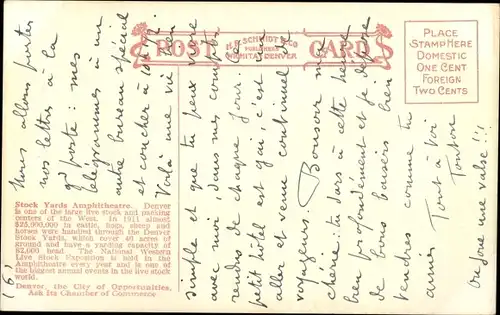 POST CARD
H.H. SCHMIDT & CO
PUBLISHERS
WICHITA, DENVER
PLACE
STAMP HERE
DOMESTIC
ONE CENT
FOREIGN
TWO CENTS
Nous allons porter
nos lettres à la
gd poste : mes
télégrammes à un
autre bureau spécial
et coucher à
Voilà une vie bien
simple et que tu peux vivre
avec moi, dans mes comptes
rendus de chaque jour. Le
petit hôtel est gai, c'est un
aller et venue continuel de
voyageurs. Bonsoir ma
chérie, tu dors à cette heure
bien profondément et je dépose
de bons baisers bien
tendres comme tu
aimes
Tout à toi
Tonton
On joue une valse !
(6)
Stock Yards Amphitheatre. Denver
is one of the large live stock and packing
centers of the West. In 1911 almost
$25,000,000 in cattle, hogs, sheep and
horses were handled through the Denver
Stock Yards, which cover 40 acres of
ground and have a yarding capacity of
52,000 head. The National Western
Live Stock Exposition is held in the
Amphitheatre every year and is one of
the biggest annual events in the live stock
world.
Denver, the City of Opportunities,
Ask Its Chamber of Commerce